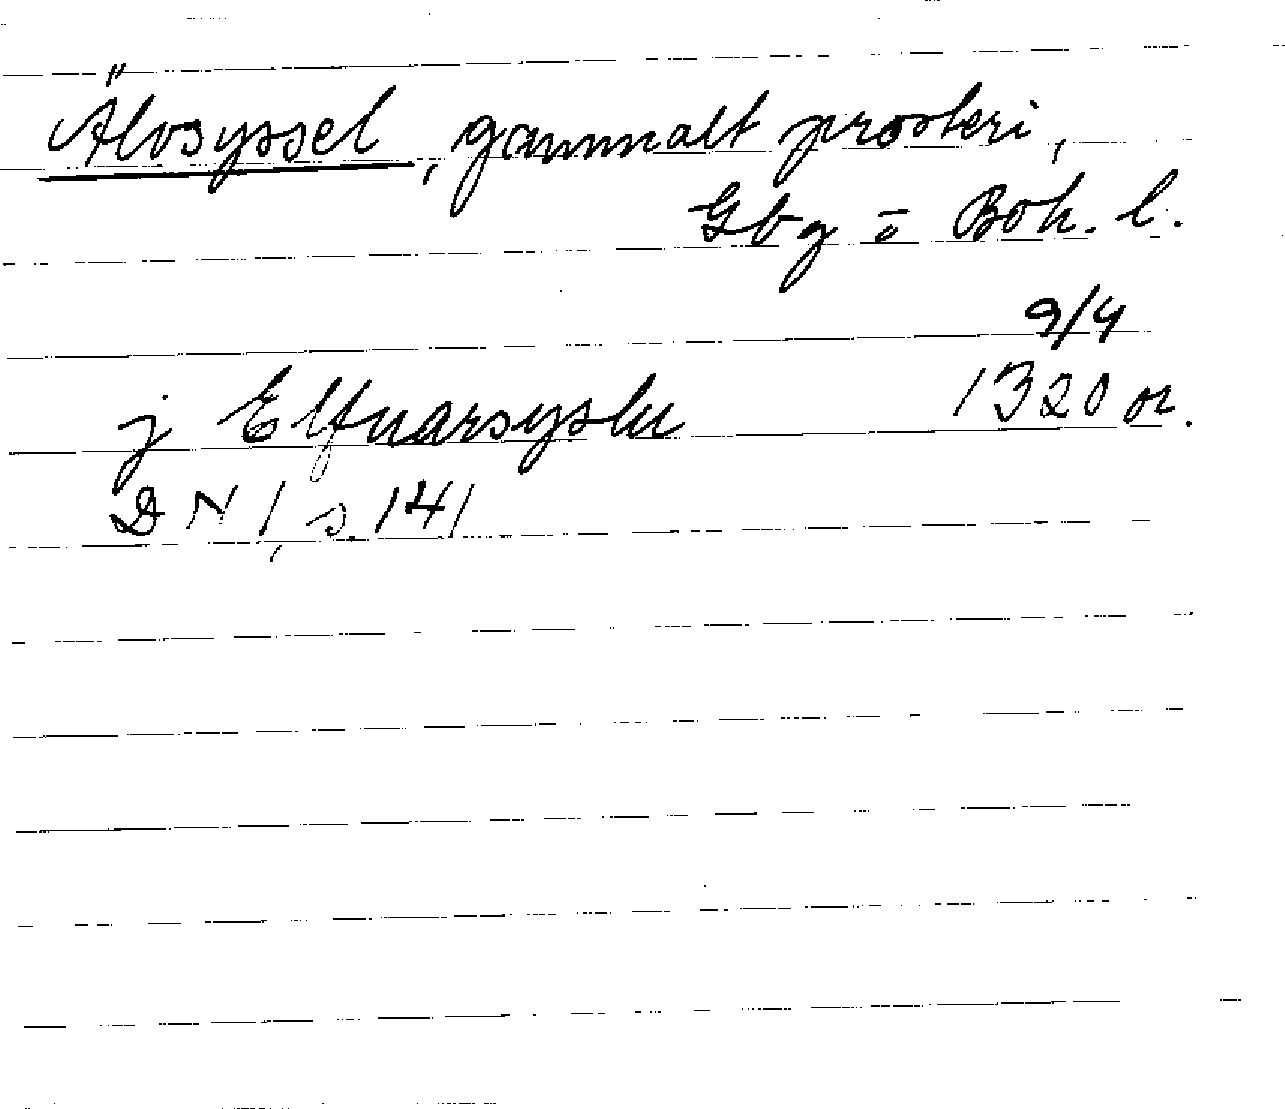 Älvsyssel, gammalt prosteri,
Gbg o Boh. l.
9/4
j Elfuarsyslu 1320 or.
DN 1, s. 141